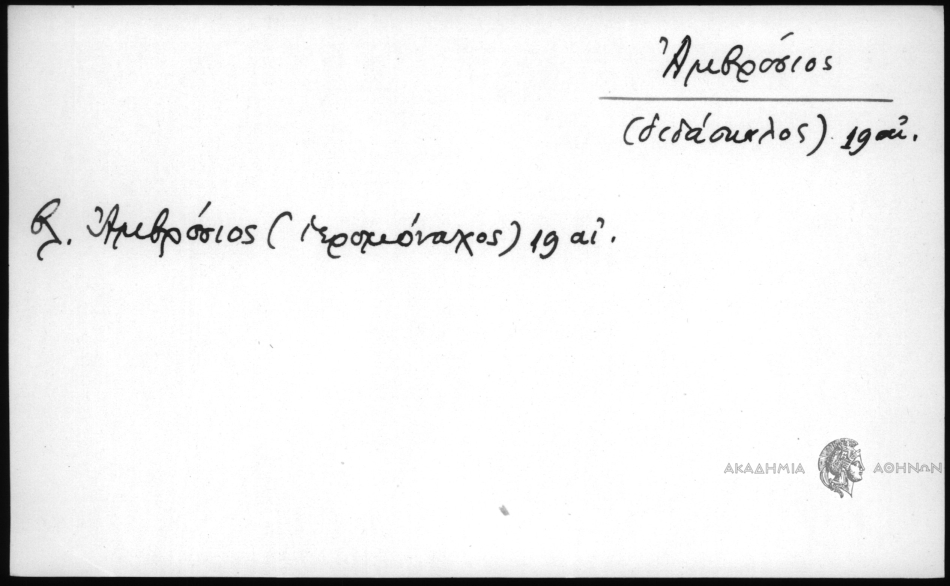 Ἀμβρόσιος
(διδάσκαλος) 19 αἰ.
βλ. Ἀμβρόσιος (ἱερομόναχος) 19 αἰ.
ΑΚΑΔΗΜΙΑ ΑΘΗΝΩΝ